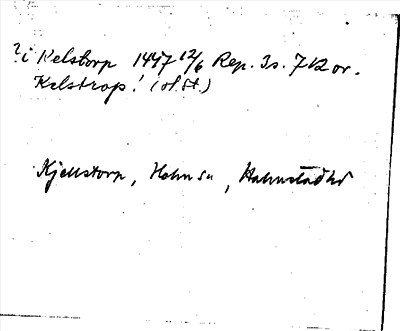 i Kelstorp 1447 12/6 Rep. 3s. 712 or.
Kelstrop! (of.st.)
Kjellstorp, Holm sn, Halmstad hd